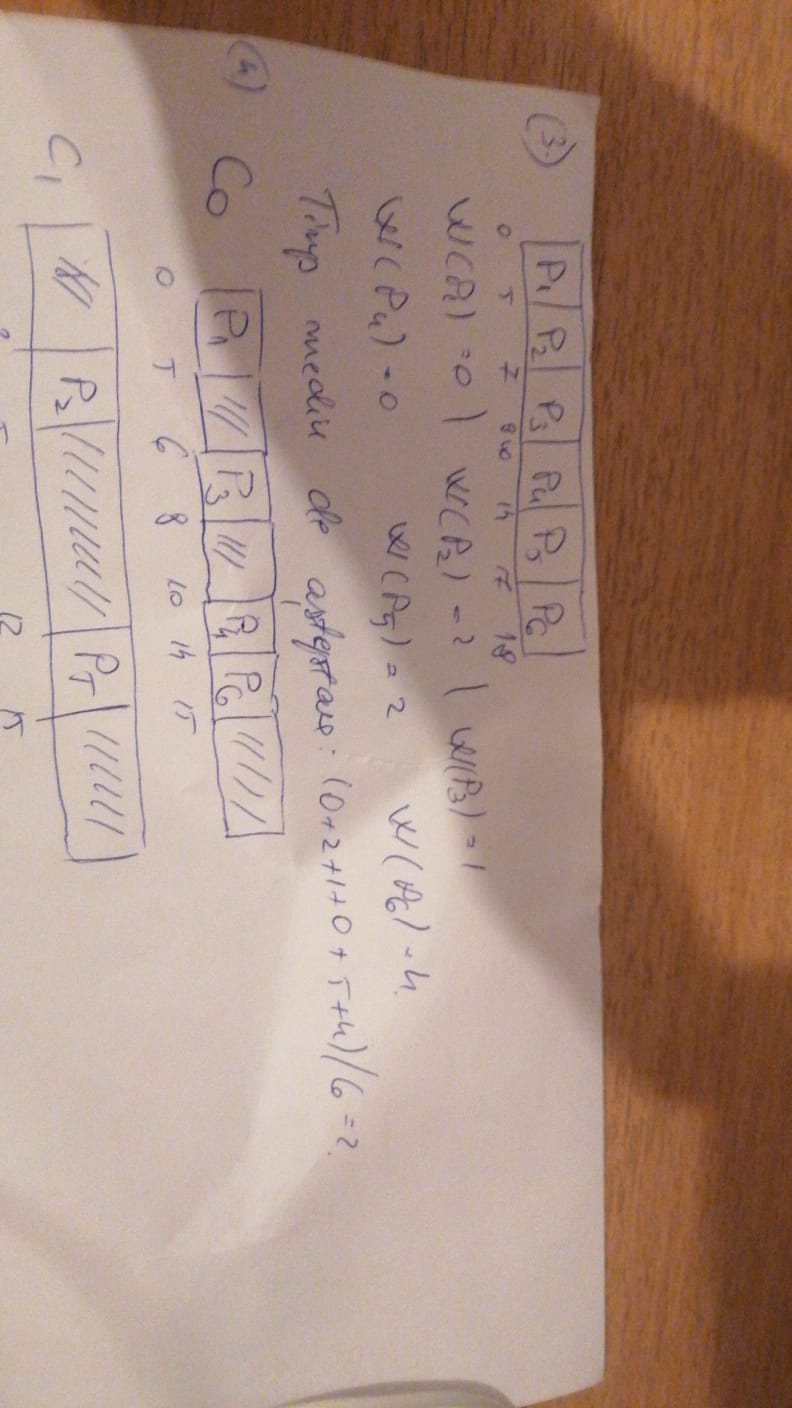 (3.) P1 P2 P3 P4 P5 P6
0 5 7 9 10 14 17 18
W(P1) = 0 | W(P2) = 2 | W(P3) = 1
W(P4) = 0 W(P5) = 2 W(P6) = 4.
Timp mediu de așteptare: (0+2+1+0+5+4)/6 = 2.
(4) C0 P1 P3 P4 P6
0 5 6 8 10 14 15
C1 P2 P5
12 15